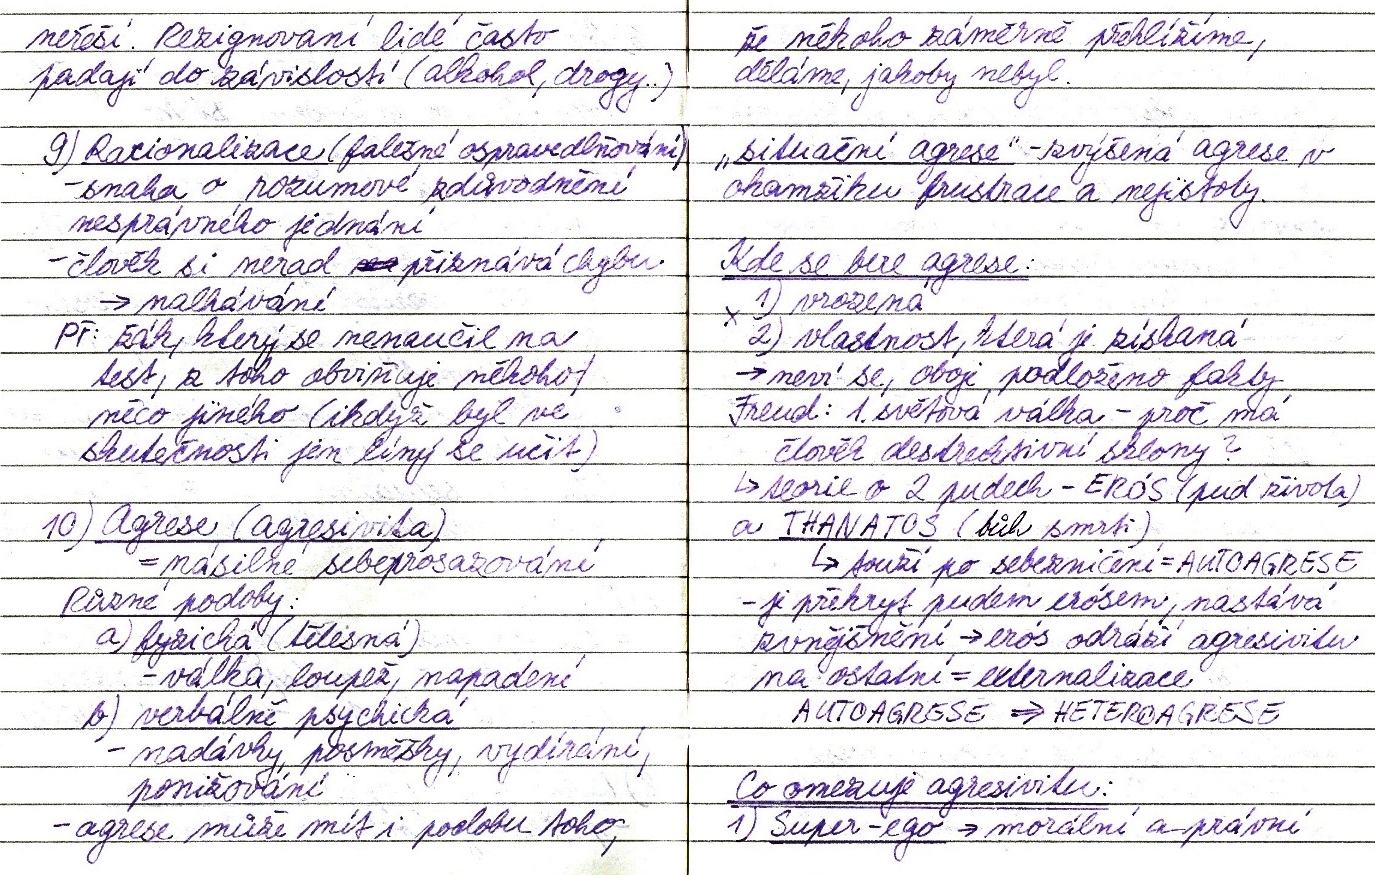 neřeší. Rezignovaní lidé často
padají do závislostí (alkohol, drogy..)
9) Racionalizace (falešné ospravedlňování)
- snaha o rozumové zdůvodnění
nesprávného jednání
- člověk si nerad přiznává chybu
→ nalhávání
Př: žák, který se nenaučil na
test, z toho obviňuje někoho/
něco jiného (ikdyž byl ve
skutečnosti jen líný se učit)
10) Agrese (agresivita)
= násilné sebeprosazování
Různé podoby:
a) fyzická (tělesná)
- válka, loupež, napadení
b) verbálně psychická
- nadávky, posměšky, vydírání,
ponižování
- agrese může mít i podobu toho,
že někoho záměrně přehlížíme,
děláme, jakoby nebyl.
„situační agrese" - zvýšená agrese v
okamžiku frustrace a nejistoty.
Kde se bere agrese:
1) vrozená
x
2) vlastnost, která je získaná
→ neví se, oboje podloženo fakty
Freud: 1. světová válka - proč má
člověk destruktivní sklony?
↳ teorie o 2 pudech - ERÓS (pud života)
a THANATOS (bůh smrti)
↳ touží po sebezničení = AUTOAGRESE
- je překryt pudem erósem, nastává
zvnějšnění → erós odráží agresivitu
na ostatní = externalizace
AUTOAGRESE ⇒ HETEROAGRESE
Co omezuje agresivitu:
1) Super-ego → morální a právní